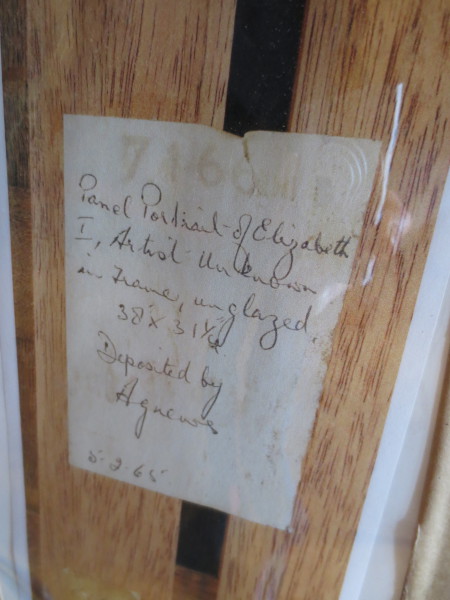 Panel Portrait of Elizabeth
I, Artist Unknown
in Frame, unglazed.
38 x 31½
Deposited by
Agnews
5.2.65.